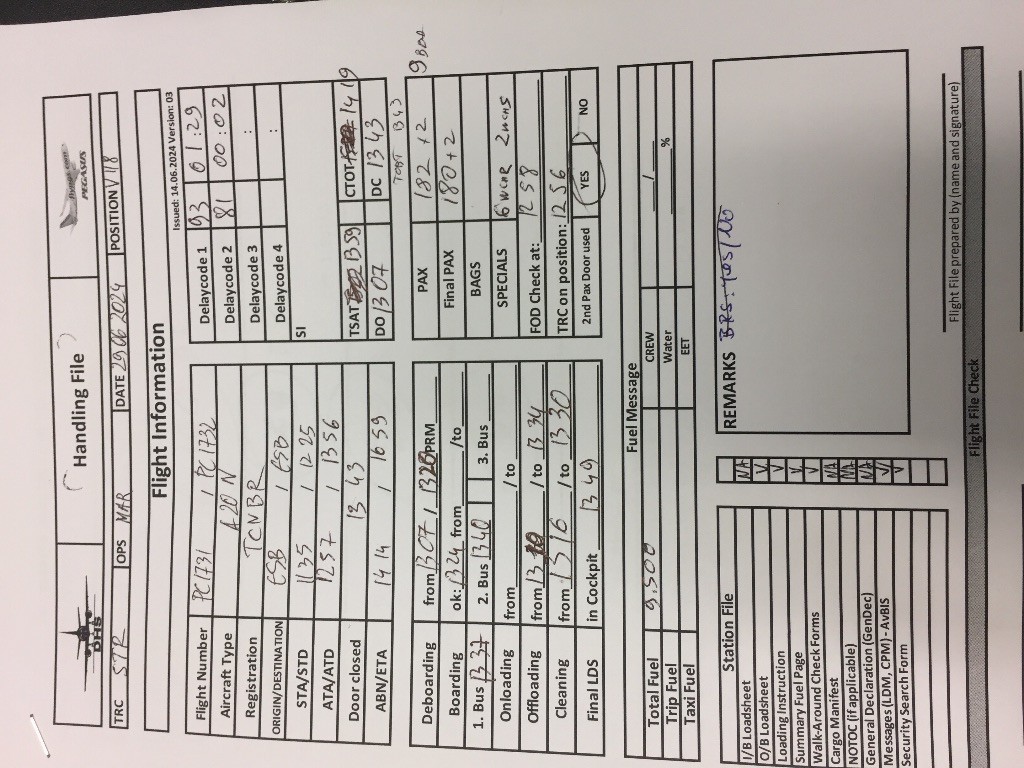 DHS
Handling File
flypgs.com
PEGASUS
TRC STR OPS MAR DATE 29.06.2024 POSITION V118
Issued: 14.06.2024 Version: 03
Flight Information
Flight Number PC1731 / PC1732
Aircraft Type A20N
Registration TCNBR
ORIGIN/DESTINATION ESB / ESB
STA/STD 1135 / 1225
ATA/ATD 1257 / 1356
Door closed 13 43
ABN/ETA 1414 / 1659
Delaycode 1 93 01:29
Delaycode 2 81 00:02
Delaycode 3 :
Delaycode 4 :
SI
TSAT 1359 CTOT 1419
DO 1307 DC 1343
TOBT 1343
Deboarding from 1307 / 1320 PRM
Boarding ok: 1324 from /to
1. Bus 1337 2. Bus 1340 3. Bus
Onloading from /to
Offloading from 13 /to 13 34
Cleaning from 1316 /to 1330
Final LDS in Cockpit 1349
PAX 182 +2
Final PAX 180+2
BAGS
SPECIALS 6 WCHR 2 WCHS
FOD Check at: 1258
TRC on position: 1256
2nd Pax Door used YES NO
Fuel Message
Total Fuel 9.500
Trip Fuel
Taxi Fuel
CREW /
Water %
EET
Station File
I/B Loadsheet NA
O/B Loadsheet V
Loading Instruction V
Summary Fuel Page V
Walk-Around Check Forms V
Cargo Manifest NA
NOTOC (if applicable) NA
General Declaration (GenDec) NA
Messages (LDM, CPM) - AvBIS V
Security Search Form V
REMARKS BRS: YES/NO
Flight File prepared by (name and signature)
Flight File Check